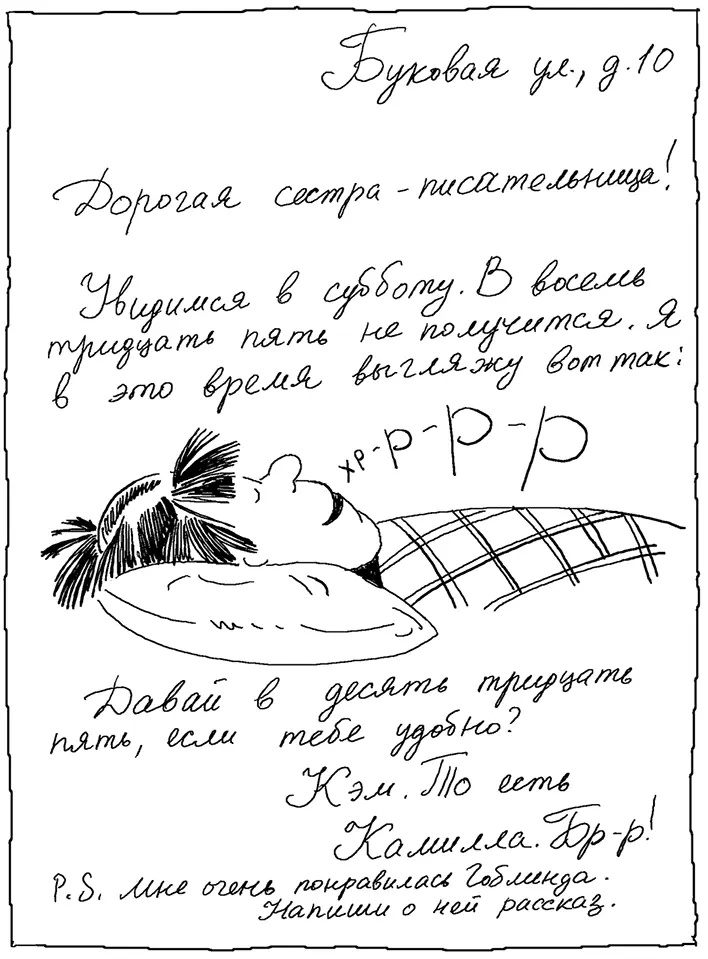 Буковая ул., д.10
Дорогая сестра-писательница!
Увидимся в субботу. В восемь
тридцать пять не получится. Я
в это время выгляжу вот так:
хр-р-р-р
Давай в десять тридцать
пять, если тебе удобно?
Кэм. То есть
Камилла. Бр-р!
P.S. Мне очень понравилась Гоблинда.
Напиши о ней рассказ.